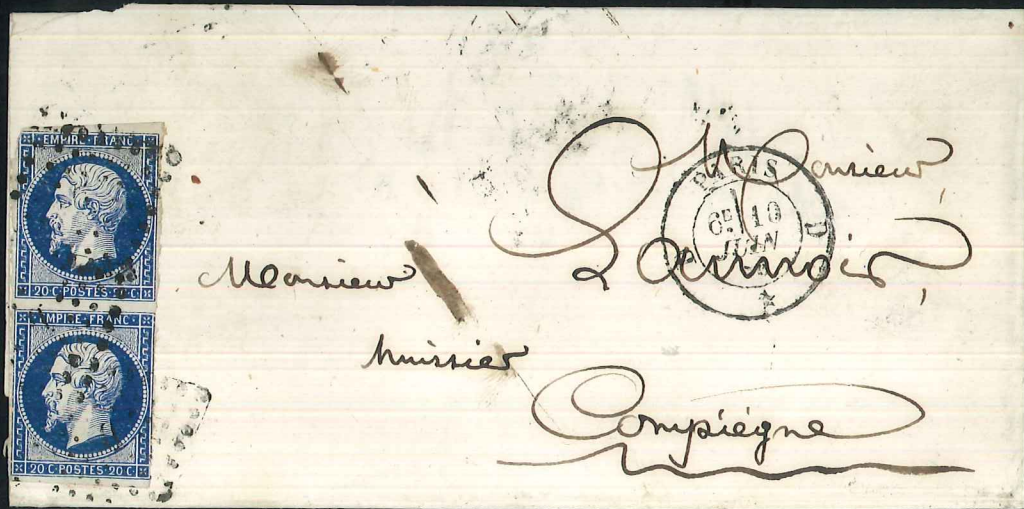 EMPIRE · FRANC
20 C · POSTES · 20 C
EMPIRE · FRANC
20 C · POSTES · 20 C
PARIS
6E 10
JUIN
D
Monsieur
Lannois,
Monsieur
huissier
Compiègne